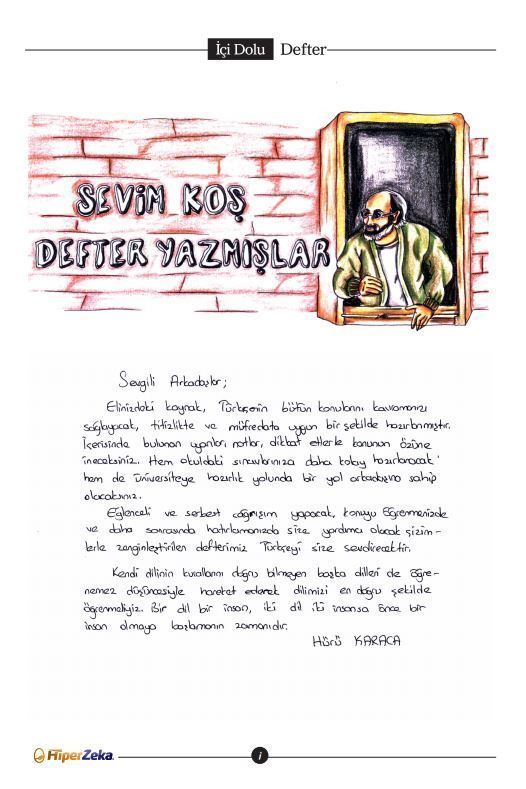 İçi Dolu Defter
SEVİM KOŞ
DEFTER YAZMIŞLAR
Sevgili Arkadaşlar;
Elinizdeki kaynak, Türkçenin bütün konularını kavramanızı
sağlayacak, titizlikte ve müfredata uygun bir şekilde hazırlanmıştır.
İçerisinde bulunan uyarıları notlar, dikkat etlerle konunun özüne
ineceksiniz. Hem okuldaki sınavlarınıza daha kolay hazırlanacak
hem de üniversiteye hazırlık yolunda bir yol arkadaşına sahip
olacaksınız.
Eğlenceli ve serbest çağrışım yapacak, konuyu öğrenmenizde
ve daha sonrasında hatırlamanızda size yardımcı olacak çizim-
lerle zenginleştirilen defterimiz Türkçeyi size sevdirecektir.
Kendi dilinin kurallarını doğru bilmeyen başka dilleri de öğre-
nemez düşüncesiyle hareket ederek dilimizi en doğru şekilde
öğrenmeliyiz. Bir dil bir insan, iki dil iki insansa önce bir
insan olmaya başlamanın zamanıdır.
Hürü KARACA
HiperZeka
i